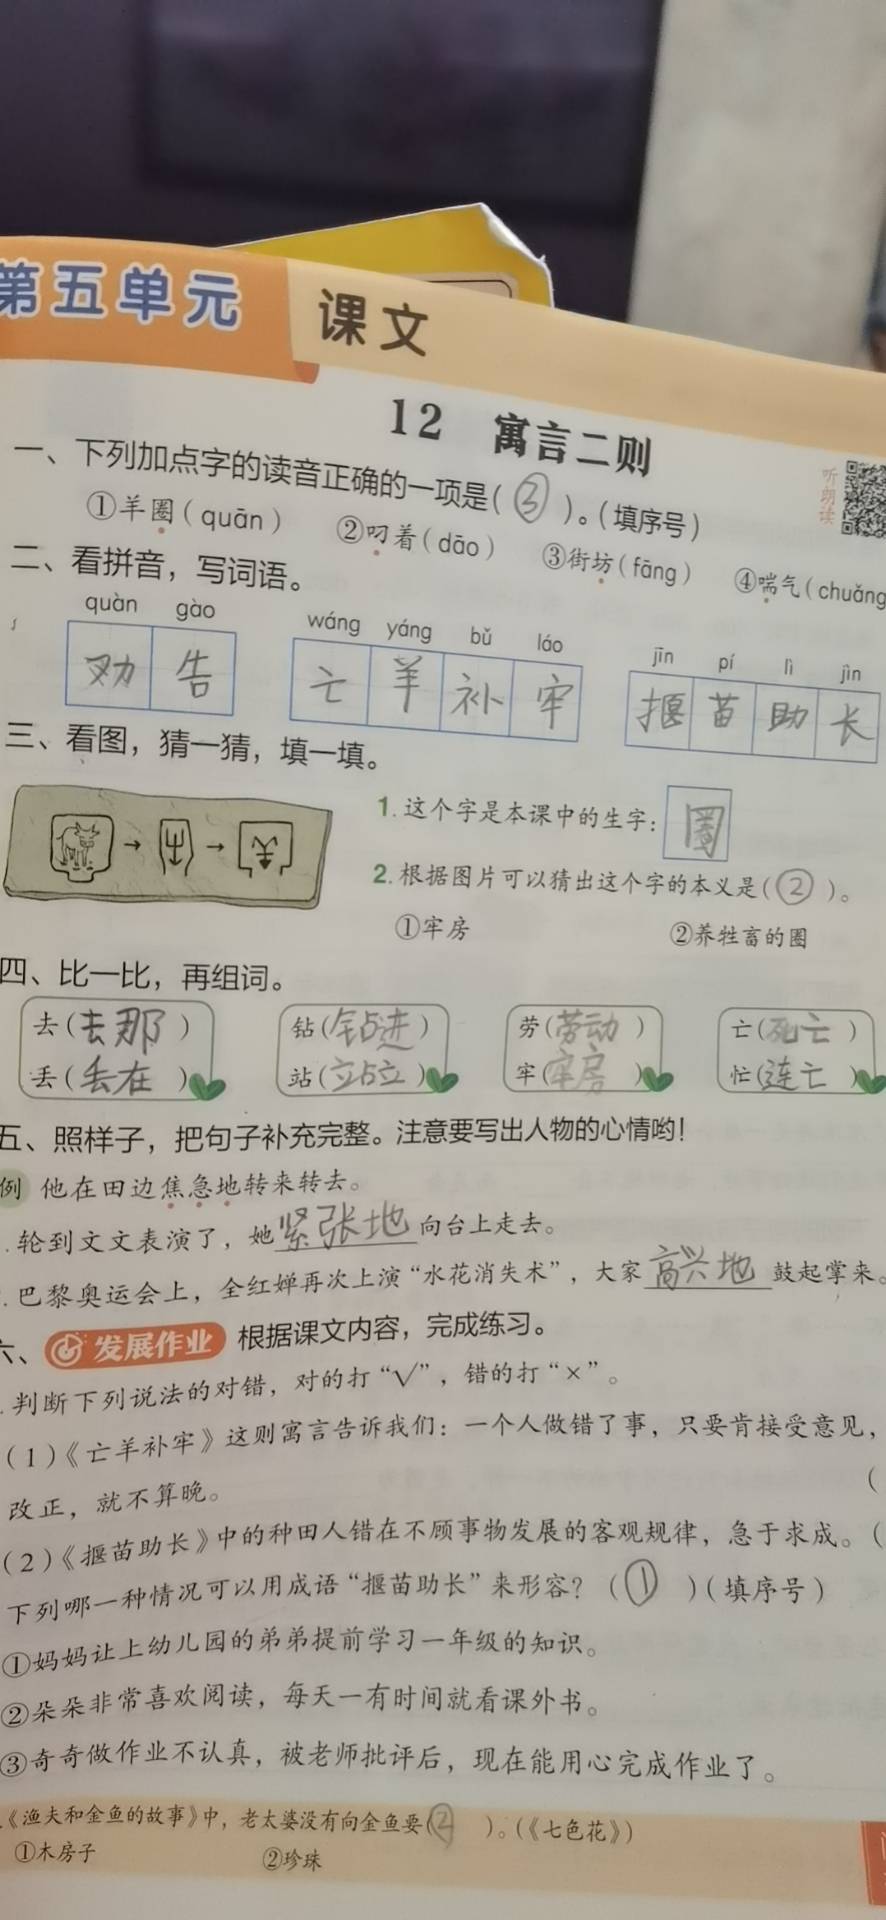 第五单元 课文
12 寓言二则
听朗读
一、下列加点字的读音正确的一项是(③)。(填序号)
①羊圈(quān) ②叼着(dāo) ③街坊(fāng) ④喘气(chuǎng
二、看拼音，写词语。
quàn gào wáng yáng bǔ láo jīn pí lì jìn
劝告 亡羊补牢 揠苗助长
三、看图，猜一猜，填一填。
1. 这个字是本课中的生字：圈
2. 根据图片可以猜出这个字的本义是(②)。
①牢房 ②养牲畜的圈
四、比一比，再组词。
去(去那) 钻(钻进) 劳(劳动) 亡(死亡)
丢(丢在) 站(立占立) 牢(牢房) 忙(连亡)
五、照样子，把句子补充完整。注意要写出人物的心情哟！
例 他在田边焦急地转来转去。
.轮到文文表演了，她紧张地向台上走去。
.巴黎奥运会上，全红婵再次上演“水花消失术”，大家高兴地鼓起掌来。
六、发展作业 根据课文内容，完成练习。
.判断下列说法的对错，对的打“√”，错的打“×”。
(1)《亡羊补牢》这则寓言告诉我们：一个人做错了事，只要肯接受意见，
改正，就不算晚。 (
(2)《揠苗助长》中的种田人错在不顾事物发展的客观规律，急于求成。(
下列哪一种情况可以用成语“揠苗助长”来形容？(①)(填序号)
①妈妈让上幼儿园的弟弟提前学习一年级的知识。
②朵朵非常喜欢阅读，每天一有时间就看课外书。
③奇奇做作业不认真，被老师批评后，现在能用心完成作业了。
.《渔夫和金鱼的故事》中，老太婆没有向金鱼要(②)。(《七色花》)
①木房子 ②珍珠